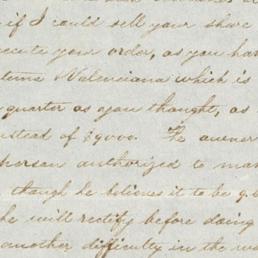 if I could sell your share
execute your order, as you hav
Valenciana which is
quarter as you thought, as
instead of $9000. He
person authorized to ma
though he believes it to be g
he will rectify before doing
another difficulty in the wa